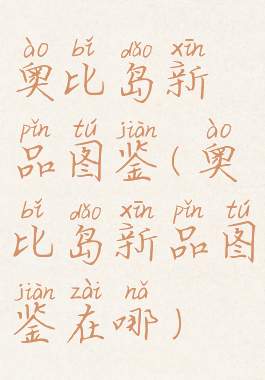 ào bǐ dǎo xīn
奥比岛新
pǐn tú jiàn ào
品图鉴(奥
bǐ dǎo xīn pǐn tú
比岛新品图
jiàn zài nǎ
鉴在哪)